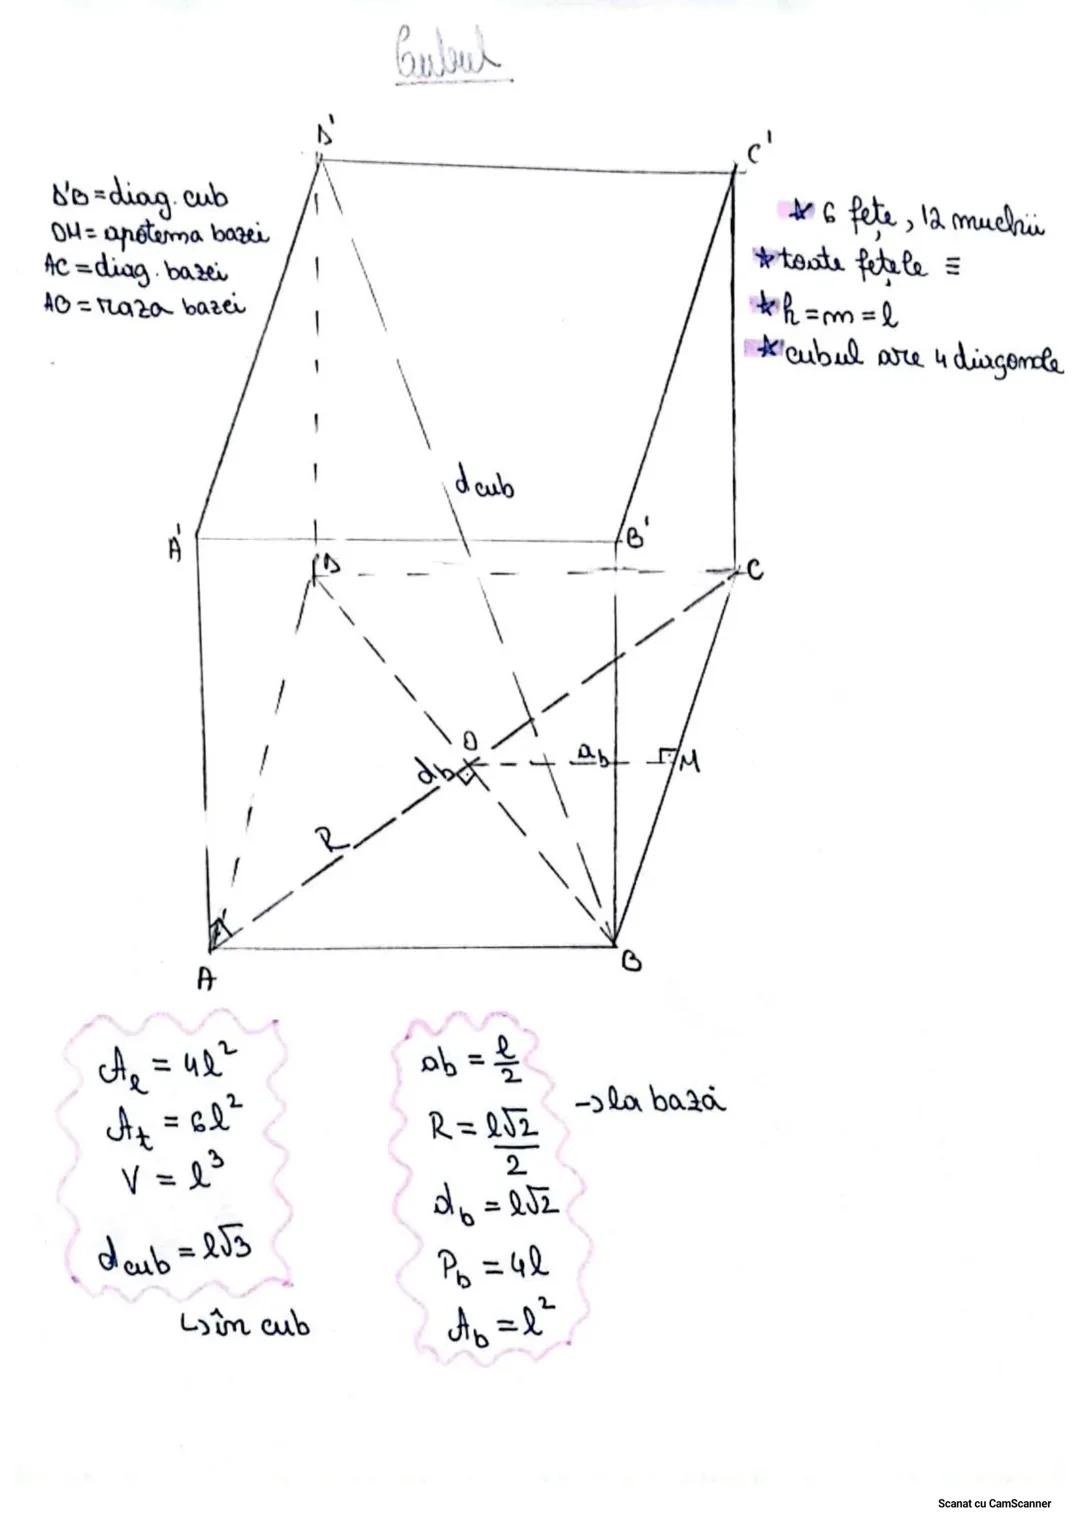 Cubul
D'
C'
D'B = diag. cub
OM = apotema bazei
AC = diag. bazei
AO = raza bazei
☆ 6 fețe, 12 muchii
☆ toate fețele ≡
☆ h = m = l
☆ cubul are 4 diagonale
d cub
A'
B'
D
C
O
db
ab
M
R
A
B
Aℓ = 4l²
At = 6l²
V = l³
d cub = l√3
↳ în cub
ab = l/2
R = l√2/2
db = l√2
Pb = 4l
Ab = l²
→ la bază
Scanat cu CamScanner